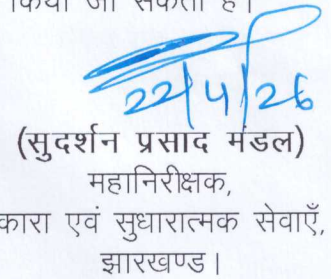 किया जा सकता है।
22/4/26
(सुदर्शन प्रसाद मंडल)
महानिरीक्षक,
कारा एवं सुधारात्मक सेवाएँ,
झारखण्ड।